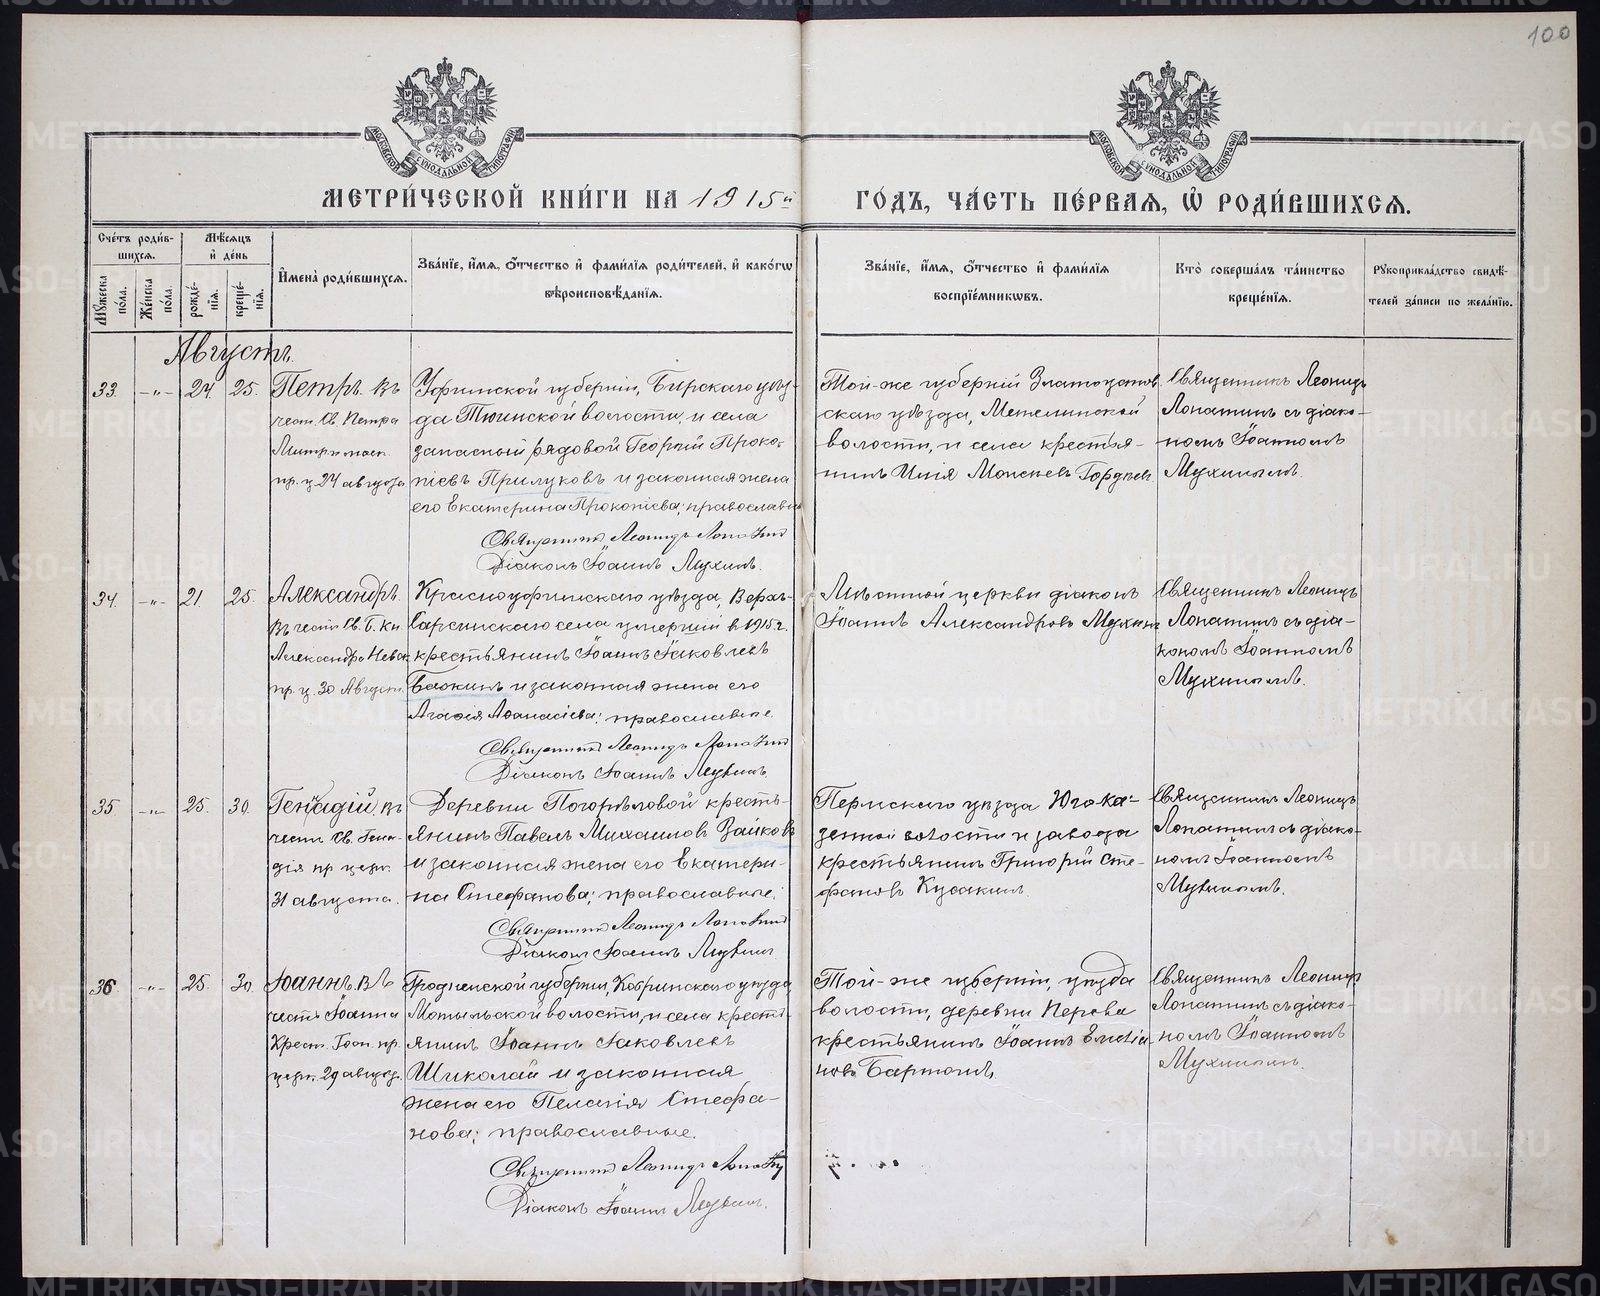 100
МЕТРИ́ЧЕСКОЙ КНИ́ГИ НА 1915й ГО́ДЪ, ЧА́СТЬ ПЕ́РВАЯ, Ѿ РОДИ́ВШИХСЯ.
Сче́тъ роди́в-
шихся.
Мѣ́сяцъ
и҆ де́нь
Му́жеска по́ла.
Же́нска по́ла.
рожде́-
нїя.
креще́-
нїя.
И҆мена̀ роди́вшихся.
Зва́нїе, и҆́мя, ѻ҆́тчество и҆ фами́лїя роди́телей, и҆ како́гѡ
вѣроисповѣ́данїя.
Зва́нїе, и҆́мя, ѻ҆́тчество и҆ фами́лїя
воспрїе́мникѡвъ.
Кто̀ соверша́лъ та́инство
креще́нїя.
Рукоприкла́дство свидѣ́-
телей за́писи по жела́нїю.
Августъ.
33.
-"-
24.
25.
Петръ. въ
чест. Св. Петра
Митрополит.
пр. ц. 24 августа
Уфимской губерніи, Бирскаго уѣз-
да волости, и села
запасный рядовой Георгій Проко-
піевъ Прилуковъ и законная жена
его Екатерина Прокопіева; православн
Священникъ Леонидъ Лопатинъ
Діаконъ Іоаннъ Мухинъ.
Той-же губерніи Златоустов-
скаго уѣзда,
волости, и села крестья-
нинъ Илія Моисеевъ
Священникъ Леонидъ
Лопатинъ съ діако-
номъ Іоанномъ
Мухинымъ.
34.
-"-
21.
25.
Александръ.
Въ честь Св. Б. кн.
Александра Невск.
пр. ц. 30 Август.
Красноуфимскаго уѣзда, Верхъ-
Саринскаго села умершій в 1915 г.
крестьянинъ Іоаннъ Іаковлевъ
и законная жена его
Агафія Аѳанасіева; православные.
Священникъ Леонидъ Лопатинъ
Діаконъ Іоаннъ Мухинъ.
Мѣстной церкви діаконъ
Іоаннъ Александровъ Мухинъ
Священникъ Леонидъ
Лопатинъ съ діа-
кономъ Іоанномъ
Мухинымъ.
35
-"-
25.
30.
Геннадій. въ
честь Св. Генна-
дія пр церк.
31 августа.
Деревни Погорѣловой кресть-
янинъ Павелъ Михаиловъ Зайковъ
и законная жена его Екатери-
на Стефанова; православные;
Священникъ Леонидъ Лопатинъ
Діаконъ Іоаннъ Мухинъ
Пермскаго уѣзда Юго-ка-
зенной волости и завода
крестьянинъ Григорій Сте-
фановъ Кусакинъ
Священникъ Леонидъ
Лопатинъ съ діако-
номъ Іоанномъ
Мухинымъ.
36.
-"-
25.
30.
Іоаннъ. въ
честь Іоанна
Крест. Госп. пр.
церк. 29 август.
Гродненской губерніи, Кобринскаго уѣзда,
Мотыльской волости, и села кресть-
янинъ Іоаннъ Іаковлевъ
Шиколай и законная
жена его Пелагія Стефа-
нова; православные.
Священникъ Леонидъ Лопатинъ
Діаконъ Іоаннъ Мухинъ.
Той-же губерніи, уѣзда
волости, деревни
крестьянинъ Іоаннъ
новъ
Священникъ Леонидъ
Лопатинъ съ діако-
номъ Іоанномъ
Мухинымъ.
METRIKI.GASO-URAL.RU